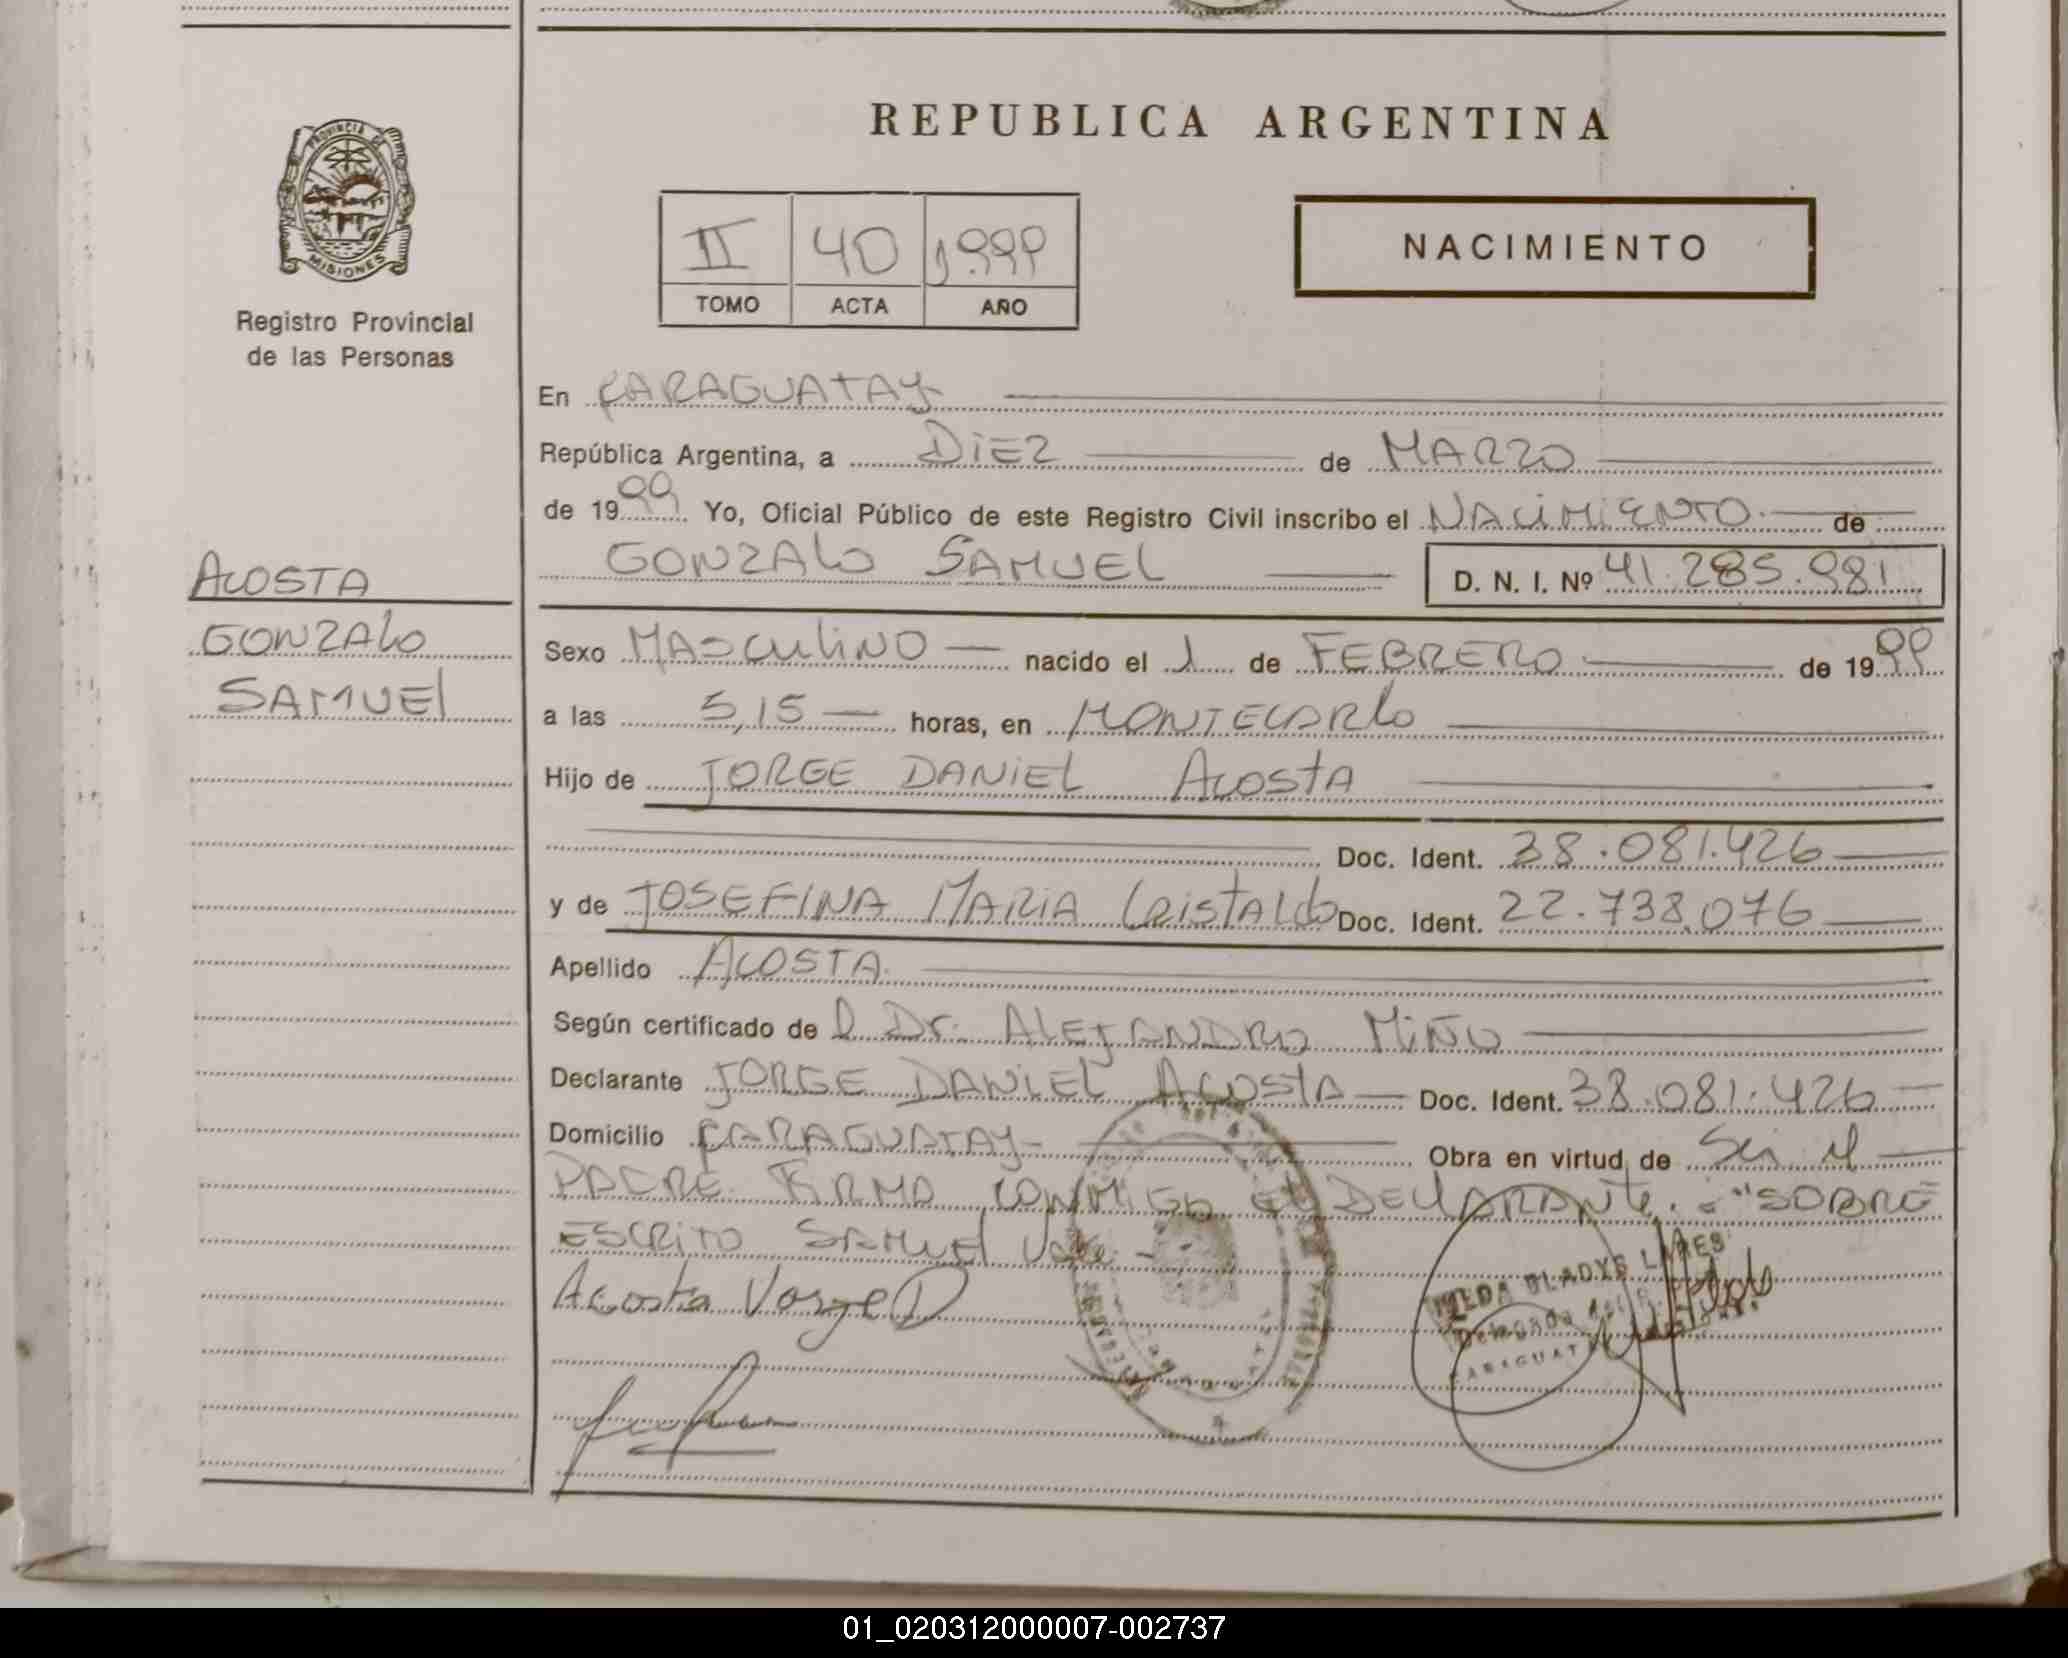 REPUBLICA ARGENTINA
PROVINCIA DE
MISIONES
Registro Provincial
de las Personas
II 40 1999
TOMO ACTA AÑO
NACIMIENTO
En CARAGUATAY
República Argentina, a DIEZ de MARZO
de 1999 Yo, Oficial Público de este Registro Civil inscribo el NACIMIENTO de
GONZALO SAMUEL D. N. I. Nº 41.285.981
ACOSTA
GONZALO
SAMUEL
Sexo MASCULINO nacido el 1 de FEBRERO de 1999
a las 5,15 horas, en MONTECARLO
Hijo de JORGE DANIEL ACOSTA
Doc. Ident. 38.081.426
y de JOSEFINA MARIA CRISTALDO Doc. Ident. 22.738.076
Apellido ACOSTA
Según certificado del Dr. ALEJANDRO MIÑO
Declarante JORGE DANIEL ACOSTA Doc. Ident. 38.081.426
Domicilio CARAGUATAY Obra en virtud de Ser el
PADRE FIRMA CONMIGO EL DECLARANTE. "SOBRE
ESCRITO SAMUEL Vale
Acosta Jorge D
GLADYS
01_020312000007-002737